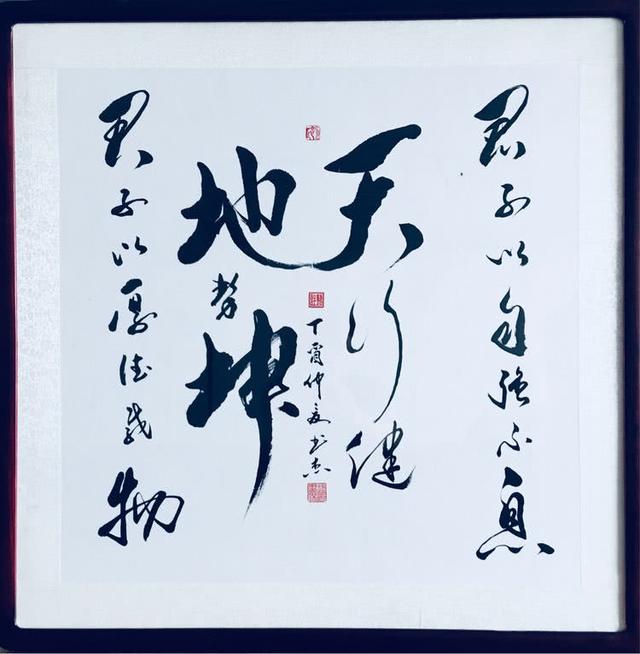 君子以自强不息
天行健
丁酉仲夏书杰
地势坤
君子以厚德载物